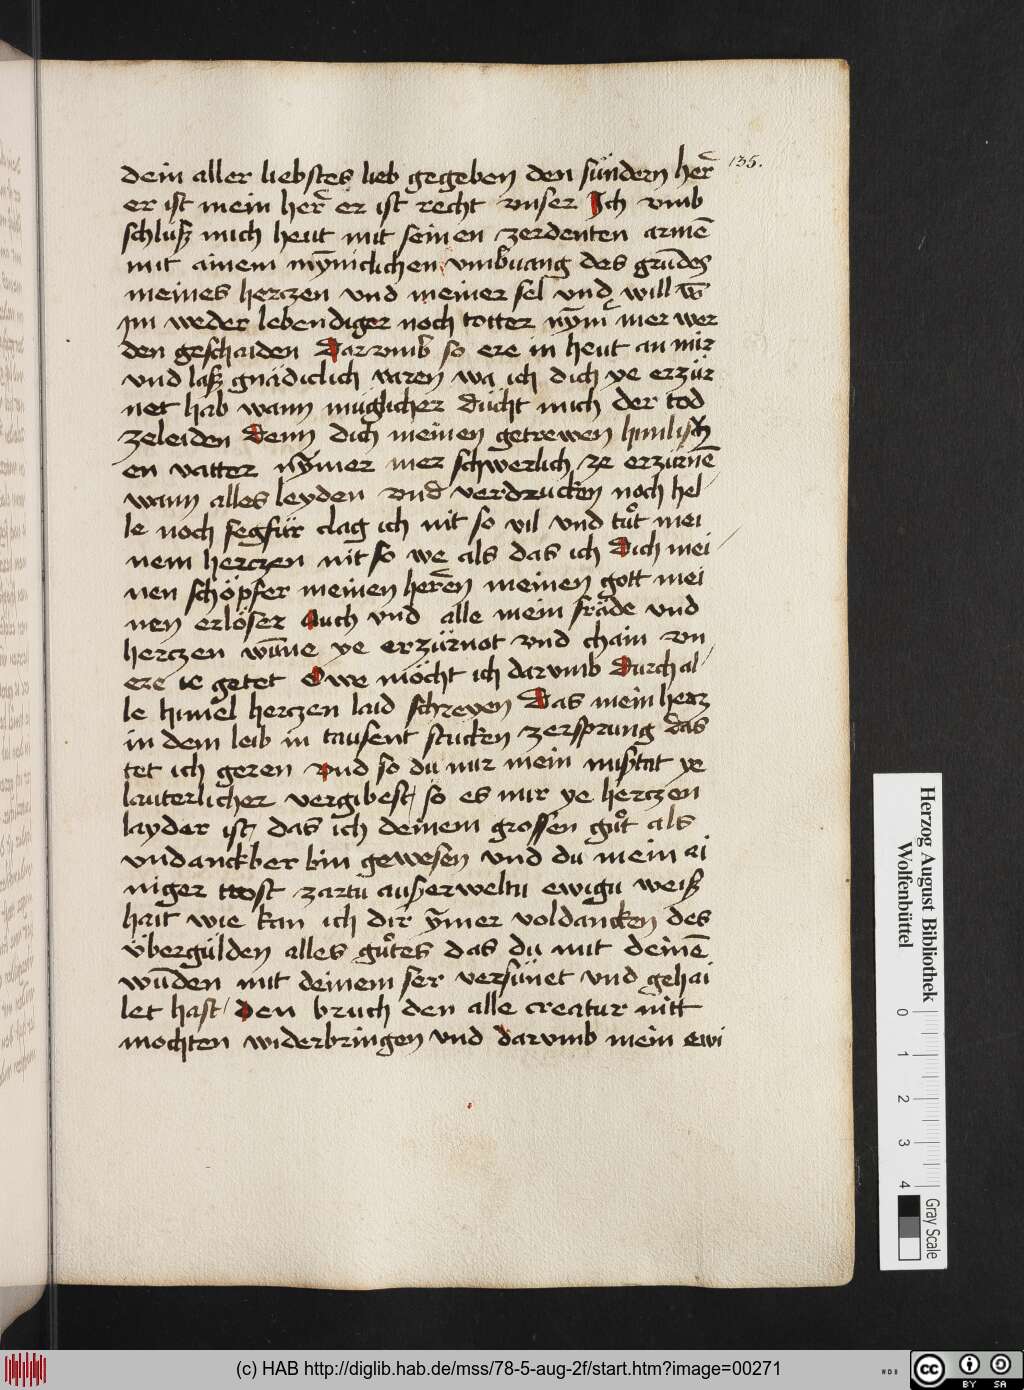 135.
dein aller liebstes lieb gegeben den sündern her̄
er ist mein her̄ er ist recht vnser Ich vmb
schlüsz mich heut mit seinen zerdenten armē
mit ainem mȳniclichen vmbuang des grūdes
meines herczen vnd meiner sel vnd will vō
im weder lebendiger noch totter nȳm̄ mer wer
den geschaiden Dar vmb so ere in heut an mir
vnd lasz gnädiclich varen wa ich dich ye erzür
net hab wann müglicher dücht mich der tod
zeleiden denn dich meinen getrewen himlisch
en vatter nȳmer mer schwerlich ze erzürnē
wann alles leyden vnd verdrucken noch hel
le noch fegfür clag ich nit so vil vnd tuͦt mei
nem herczen nit so we als das ich Dich mei
nen schöpfer meinen herēn meinen gott mei
nen erlöser Auch vnd alle mein fräde vnd
herczen wūne ye erzürnot vnd chain vn
ere ie getet Owe möcht ich darvmb Durch al
le himel herczen laid schreyen Das mein hercz
in dem leib in tausent stucken zersprung das
tet ich geren vnd so du mir mein misztat ye
lauterlicher vergibest so es mir ye herczen
layder ist das ich deinem grossen guͦt als
vndanckber bin gewesen vnd du mein ai
niger trost zartu auszerweltu ewigu weisz
hait wie kan ich dir ȳmer voldancken des
übergülden alles guͦtes das du mit deinē
wūden mit deinem ser versünet vnd gehai
let hast den bruch den alle creatur nitt
mochten widerbringen vnd darvmb mein ewi
Herzog August Bibliothek
Wolfenbüttel
0
1
2
3
4
Gray Scale
(c) HAB http://diglib.hab.de/mss/78-5-aug-2f/start.htm?image=00271
WDB
cc
BY SA